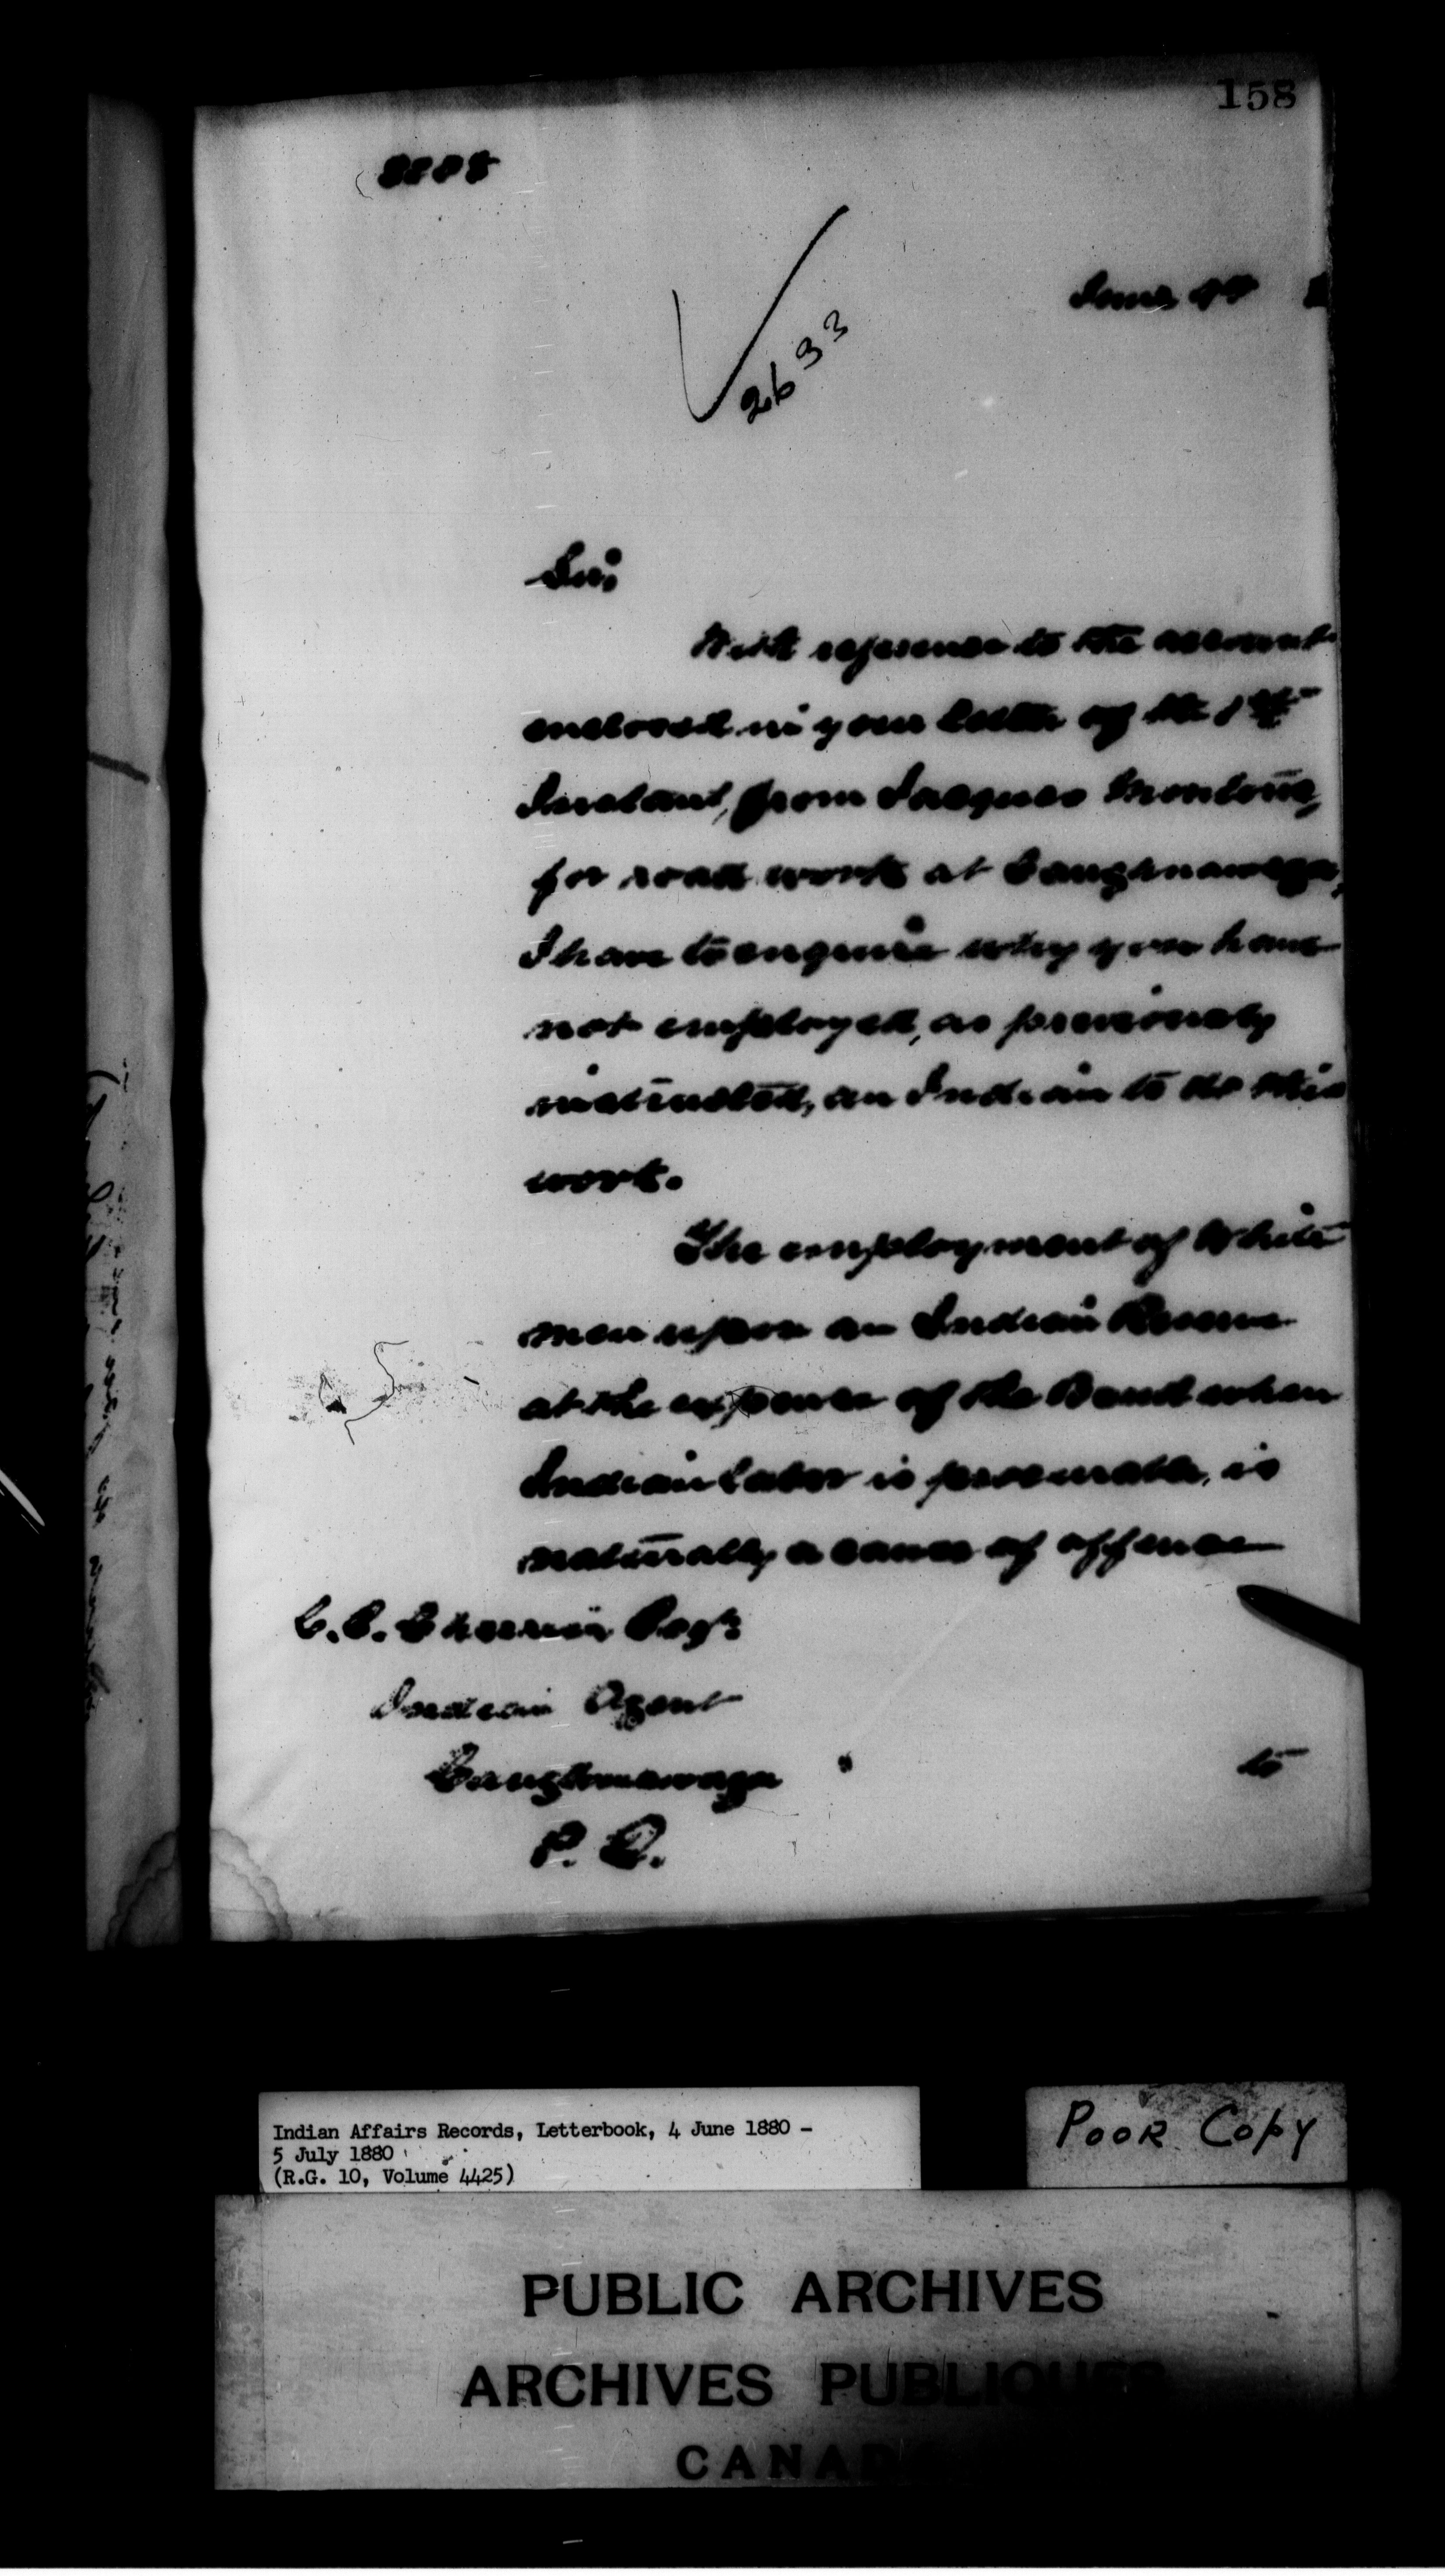 158
June
2633
Sir,
With reference to the account
enclosed in your letter of the
Instant, from Jacques
for road work at Caughnawaga,
I have to enquire why you have
not employed, as previously
instructed, an Indian to do this
work.
The employment of White
men upon an Indian Reserve
at the expense of the Band when
Indian labor is procurable, is
naturally a cause of offence
Indian Agent
Caughnawaga
P. Q.
to
Indian Affairs Records, Letterbook, 4 June 1880 –
5 July 1880
(R.G. 10, Volume 4425)
POOR Copy
PUBLIC ARCHIVES
ARCHIVES PUBLIQUES
CANADA